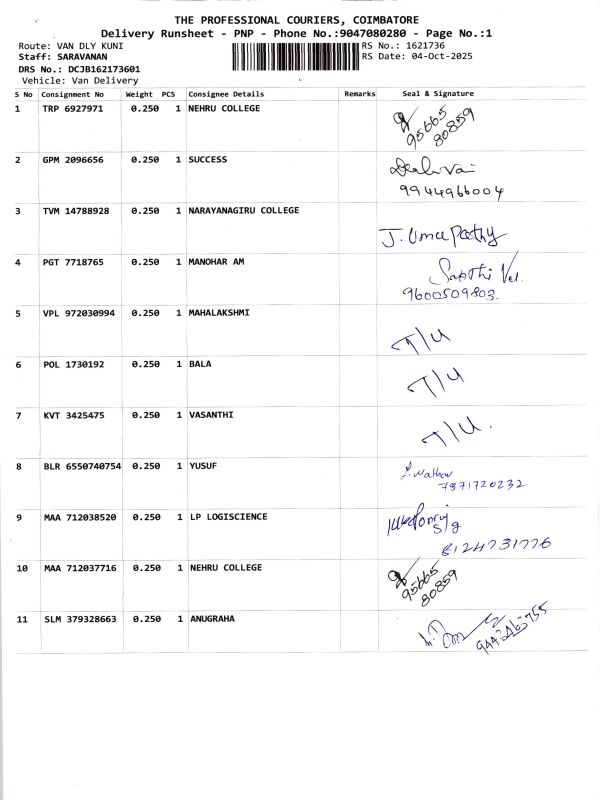 THE PROFESSIONAL COURIERS, COIMBATORE
Delivery Runsheet - PNP - Phone No.:9047080280 - Page No.:1
Route: VAN DLY KUNI
RS No.: 1621736
Staff: SARAVANAN
RS Date: 04-Oct-2025
DRS No.: DCJB162173601
Vehicle: Van Delivery
S No Consignment No Weight PCS Consignee Details Remarks Seal & Signature
1 TRP 6927971 0.250 1 NEHRU COLLEGE
95665
80859
2 GPM 2096656 0.250 1 SUCCESS
9944966004
3 TVM 14788928 0.250 1 NARAYANAGIRU COLLEGE
J. Umapathy
4 PGT 7718765 0.250 1 MANOHAR AM
Sakthi Vel.
9600509803.
5 VPL 972030994 0.250 1 MAHALAKSHMI
T/U
6 POL 1730192 0.250 1 BALA
T/U
7 KVT 3425475 0.250 1 VASANTHI
T/U.
8 BLR 6550740754 0.250 1 YUSUF
Mathew
7871720232
9 MAA 712038520 0.250 1 LP LOGISCIENCE
8124731776
10 MAA 712037716 0.250 1 NEHRU COLLEGE
95665
80859
11 SLM 379328663 0.250 1 ANUGRAHA